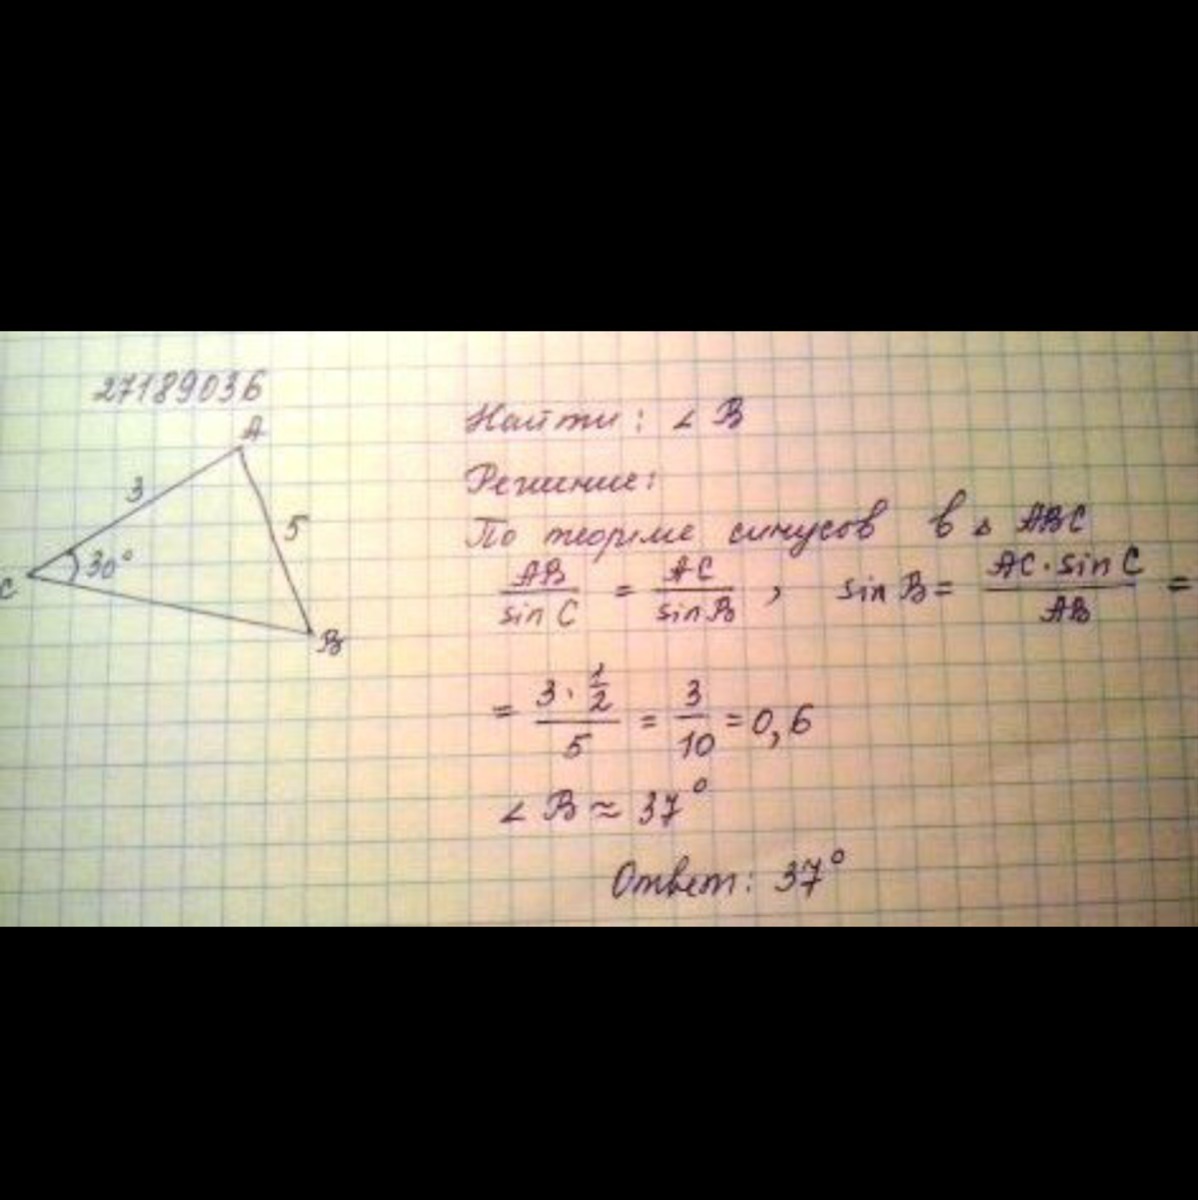 27189036
A
3
5
30°
C
B
Найти: ∠ B
Решение:
По теореме синусов в △ ABC
AB/sin C = AC/sin B, sin B = AC · sin C/AB =
= 3 · 1/2/5 = 3/10 = 0,6
∠ B ≈ 37°
Ответ: 37°